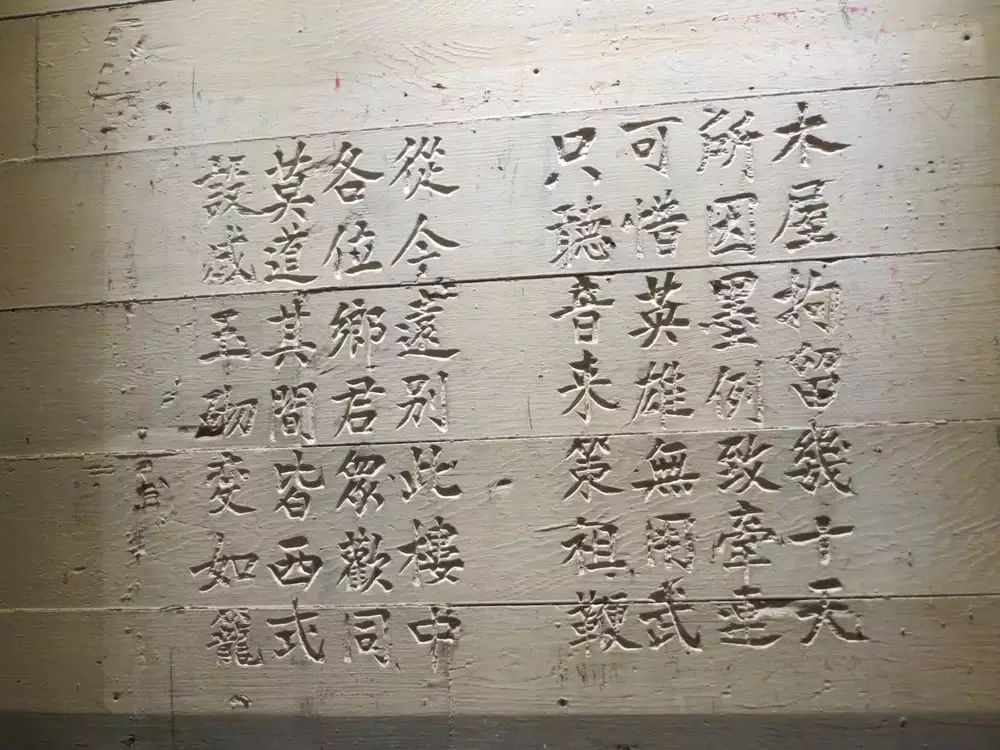 木屋拘留幾十天
所因墨例致牽連
可惜英雄無用武
只聽音来策祖鞭
從今遠別此樓中
各位鄉君眾歡同
莫道其間皆西式
設咸玉砌变如籠